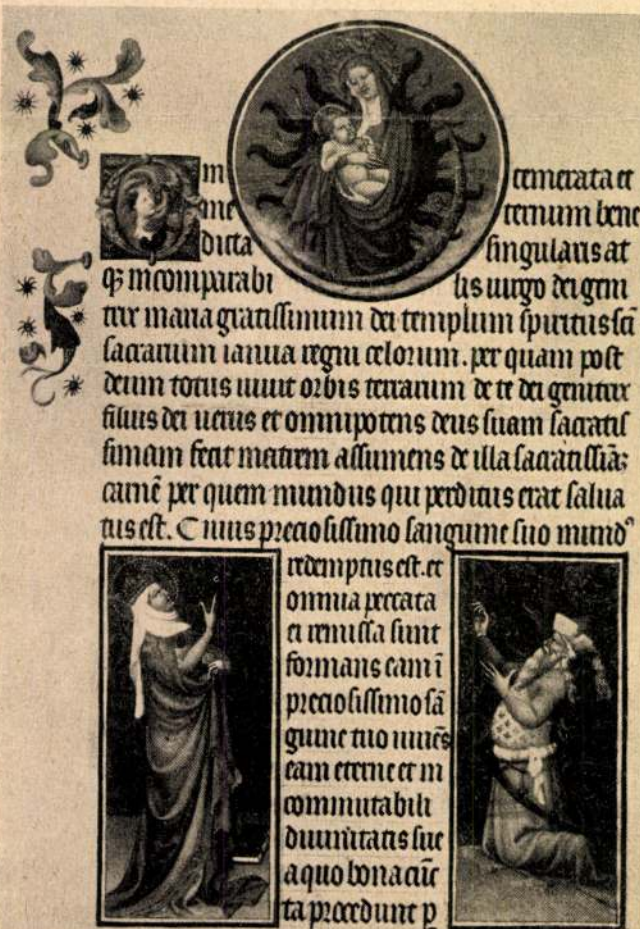 O in temerata et
me ternum bene
dicta singularis at
q; incomparabi lis uirgo dei geni
trix maria gratissimum dei templum spiritus sci
sacrarium ianua regni celorum. per quam post
deum totus uiuit orbis terrarum de te dei genitrix
filius dei uerus et omnipotens deus suam sacratis
simam fecit matrem assumens de illa sacratissiā;
carnē per quem mundus qui perditus erat salua
tus est. Cuius preciosissimo sanguine suo mundꝰ
redemptus est. et
omnia peccata
ei remissa sunt
formans eam ī
preciosissimo sā
guine tuo
eam eterne et in
commutabili
diuinitatis sue
a quo bona cūc
ta procedunt p